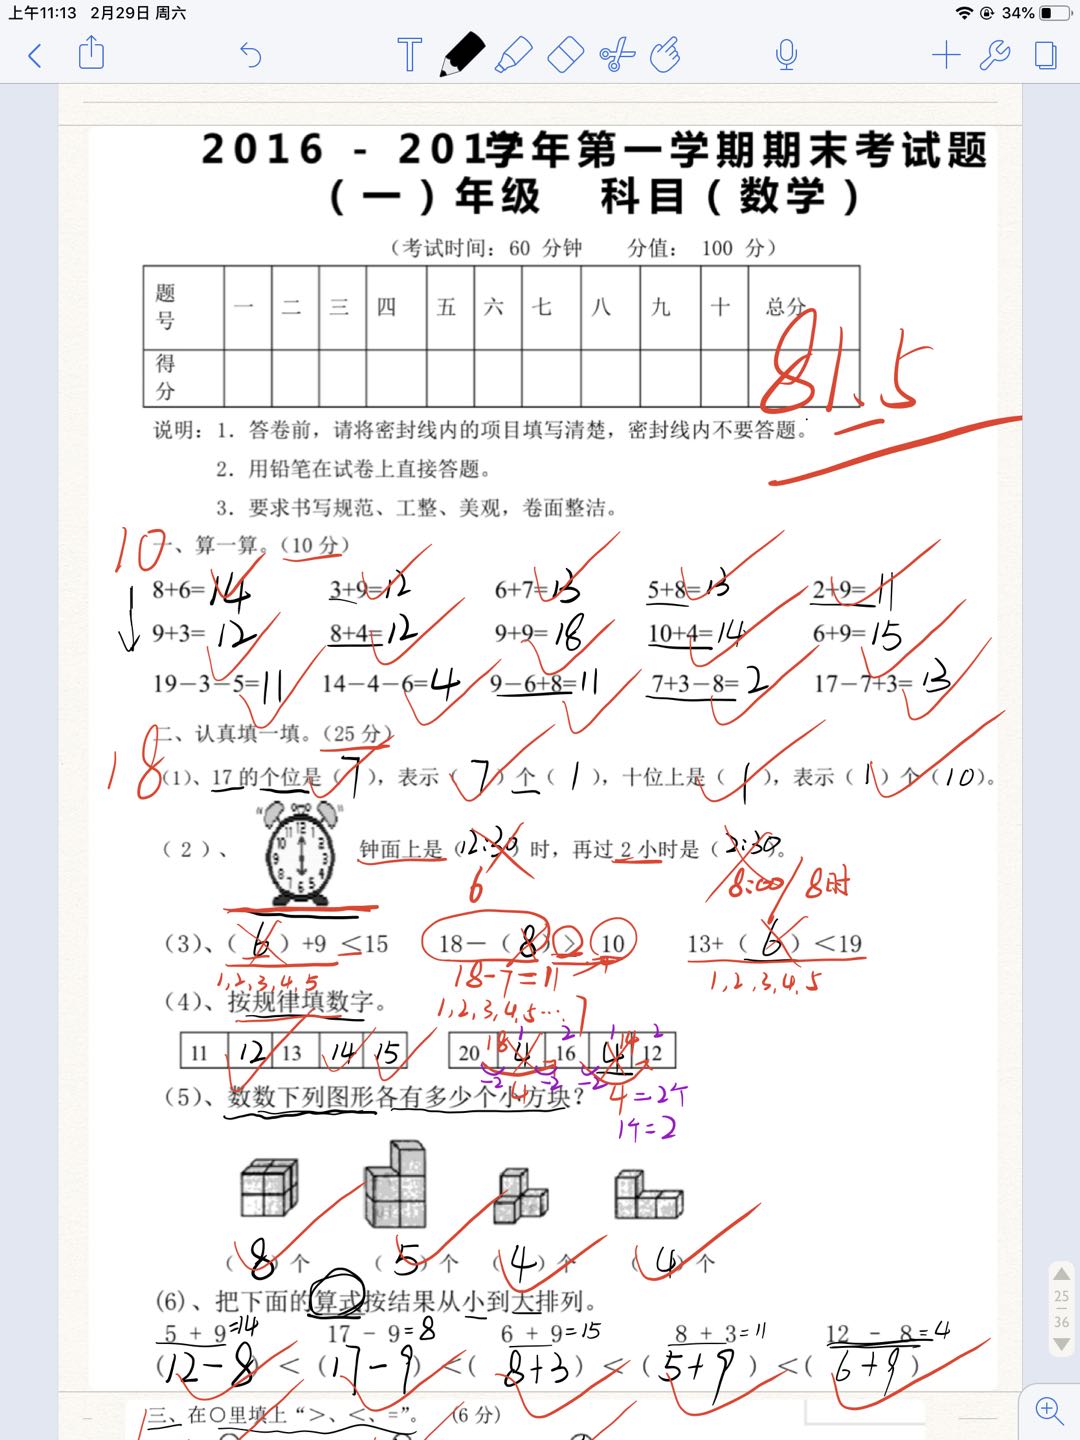 上午11:13 2月29日 周六 34%
2016 - 2017学年第一学期期末考试题
（一）年级 科目（数学）
（考试时间：60 分钟 分值： 100 分）
题号 一 二 三 四 五 六 七 八 九 十 总分
得分
81.5
说明：1．答卷前，请将密封线内的项目填写清楚，密封线内不要答题。
2．用铅笔在试卷上直接答题。
3．要求书写规范、工整、美观，卷面整洁。
10
一、算一算。（10 分）
8+6=14 3+9=12 6+7=13 5+8=13 2+9=11
9+3=12 8+4=12 9+9=18 10+4=14 6+9=15
19－3－5=11 14－4－6=4 9－6+8=11 7+3－8=2 17－7+3=13
18
二、认真填一填。（25 分）
（1）、17 的个位是（7），表示（7）个（1），十位上是（1），表示（1）个（10）。
（2）、 钟面上是（12:30）时，再过 2 小时是（2:30）。
6 8:00/8时
（3）、（6）+9 ≤15 18－（8）> 10 13+（6）＜19
1,2,3,4,5 18-7=11 1,2,3,4,5
1,2,3,4,5…7
（4）、按规律填数字。
18 1 2 1 14 2
11 12 13 14 15 20 4 16 4 12
-2 -2 -2
4 4=2个
1个=2
（5）、数数下列图形各有多少个小方块？
（8）个 （5）个 （4）个 （4）个
(6)、把下面的算式按结果从小到大排列。
5 + 9=14 17 - 9=8 6 + 9=15 8 + 3=11 12 - 8=4
（12-8）＜（17-9）＜（8+3）＜（5+9）＜（6+9）
三、在○里填上“>、<、=”。（6 分）
25
36